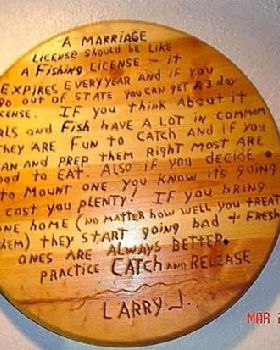 A MARRIAGE
LICENSE SHOULD BE LIKE
A FISHING LICENSE - it
EXPIRES EVERY YEAR AND if you
GO OUT OF STATE YOU CAN GET A 3 day
CENSE. If you THINK ABOUT it
LS AND Fish HAVE A LOT IN COMMON
THEY ARE FUN to CATCH AND if you
AN AND PREP THEM Right MOST ARE
OOD to EAT. Also if you DECIDE
to MOUNT ONE you KNOW its going
COST you PLENTY? If you BRING
ONE HOME (NO MATTER HOW WELL YOU TREAT
THEM) they START going BAD + FRESH
ONES ARE ALWAYS BETTER.
PRACTICE CATCH AND RELEASE
LARRY J.
MAR 2